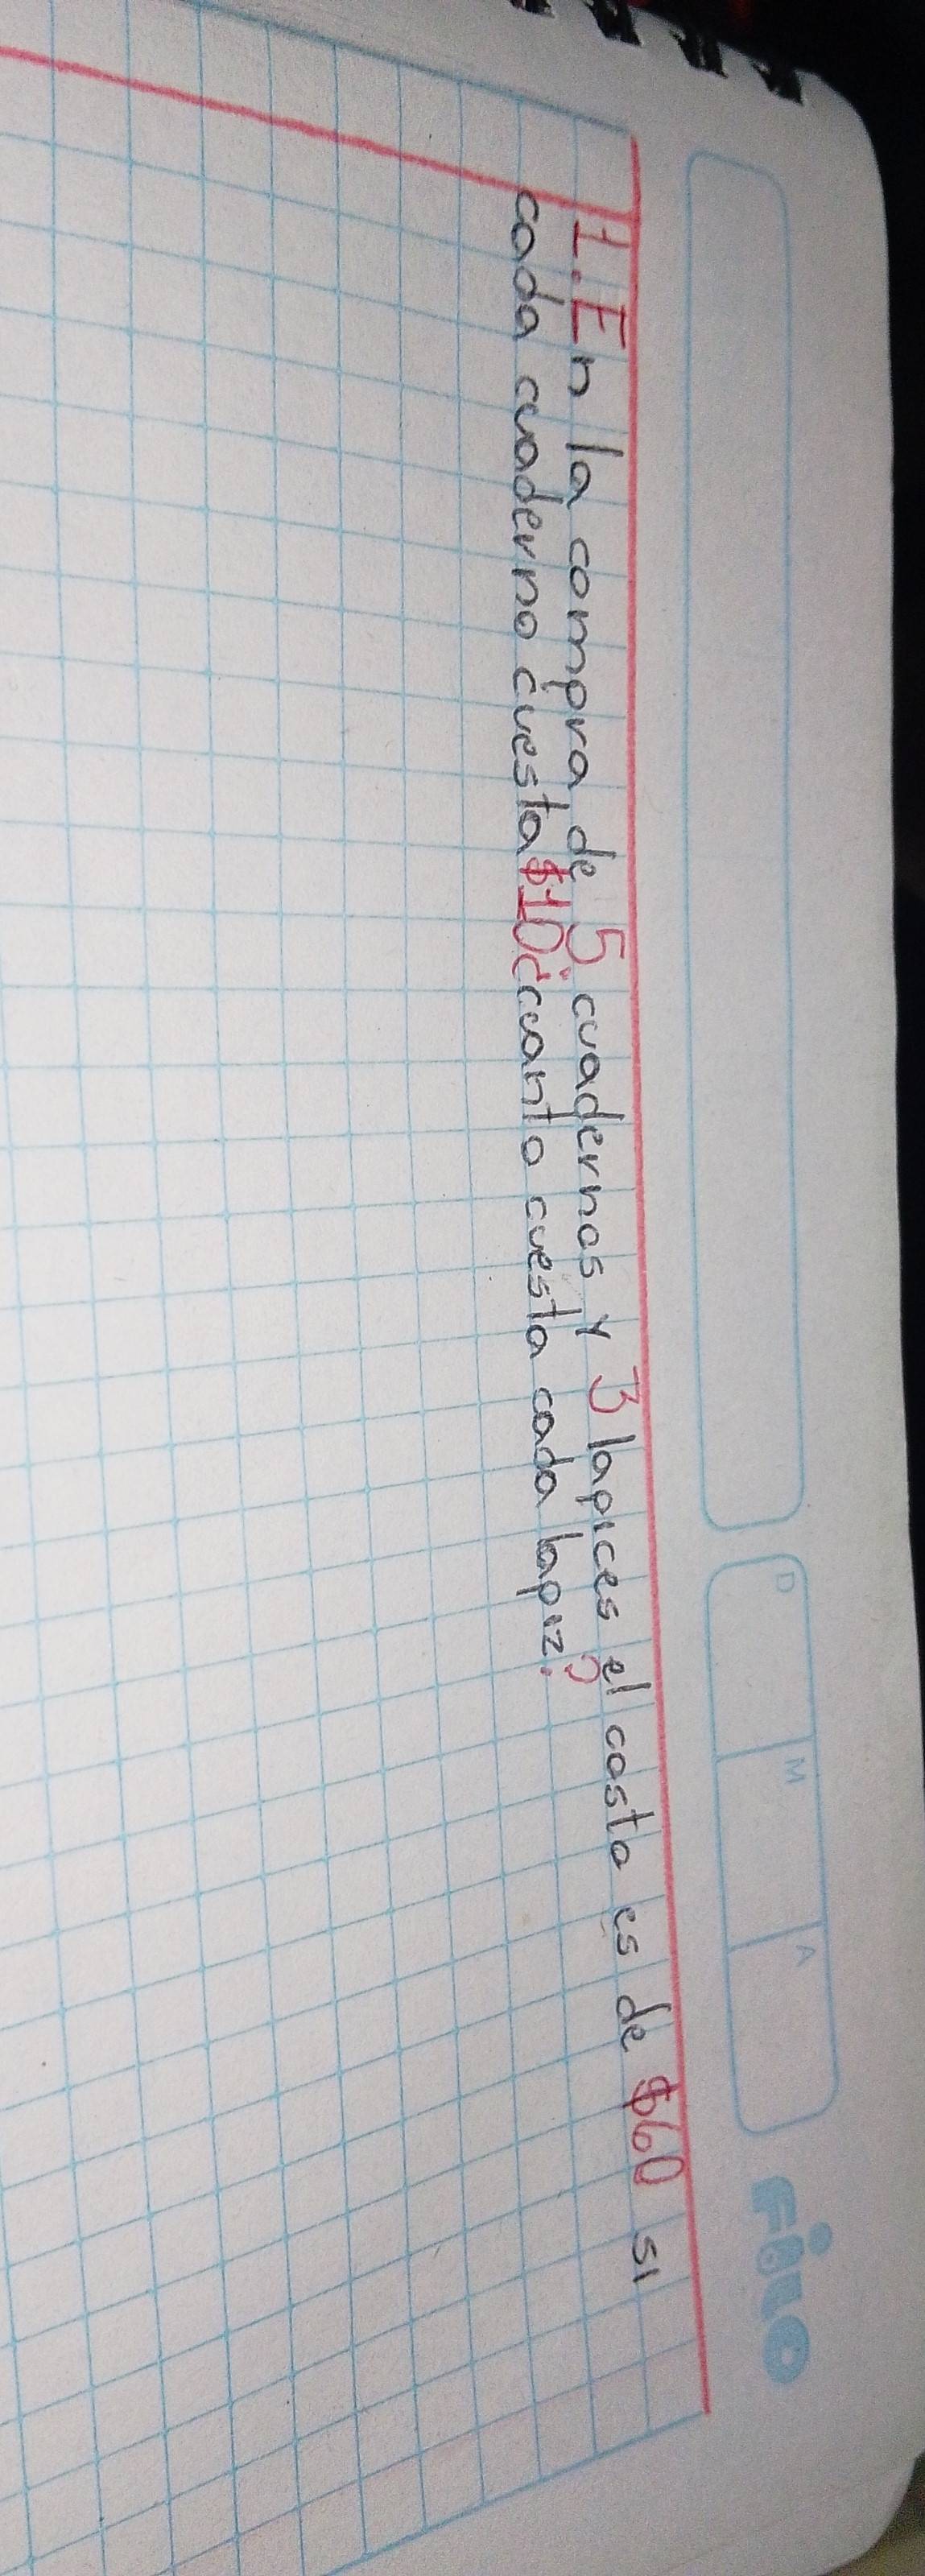 D M A FiLO
1. En la compra de 5 cuadernos y 3 lapices el costo es de $60 si
cada cuaderno cuesta $10 ¿cuanto cuesta cada lapiz?